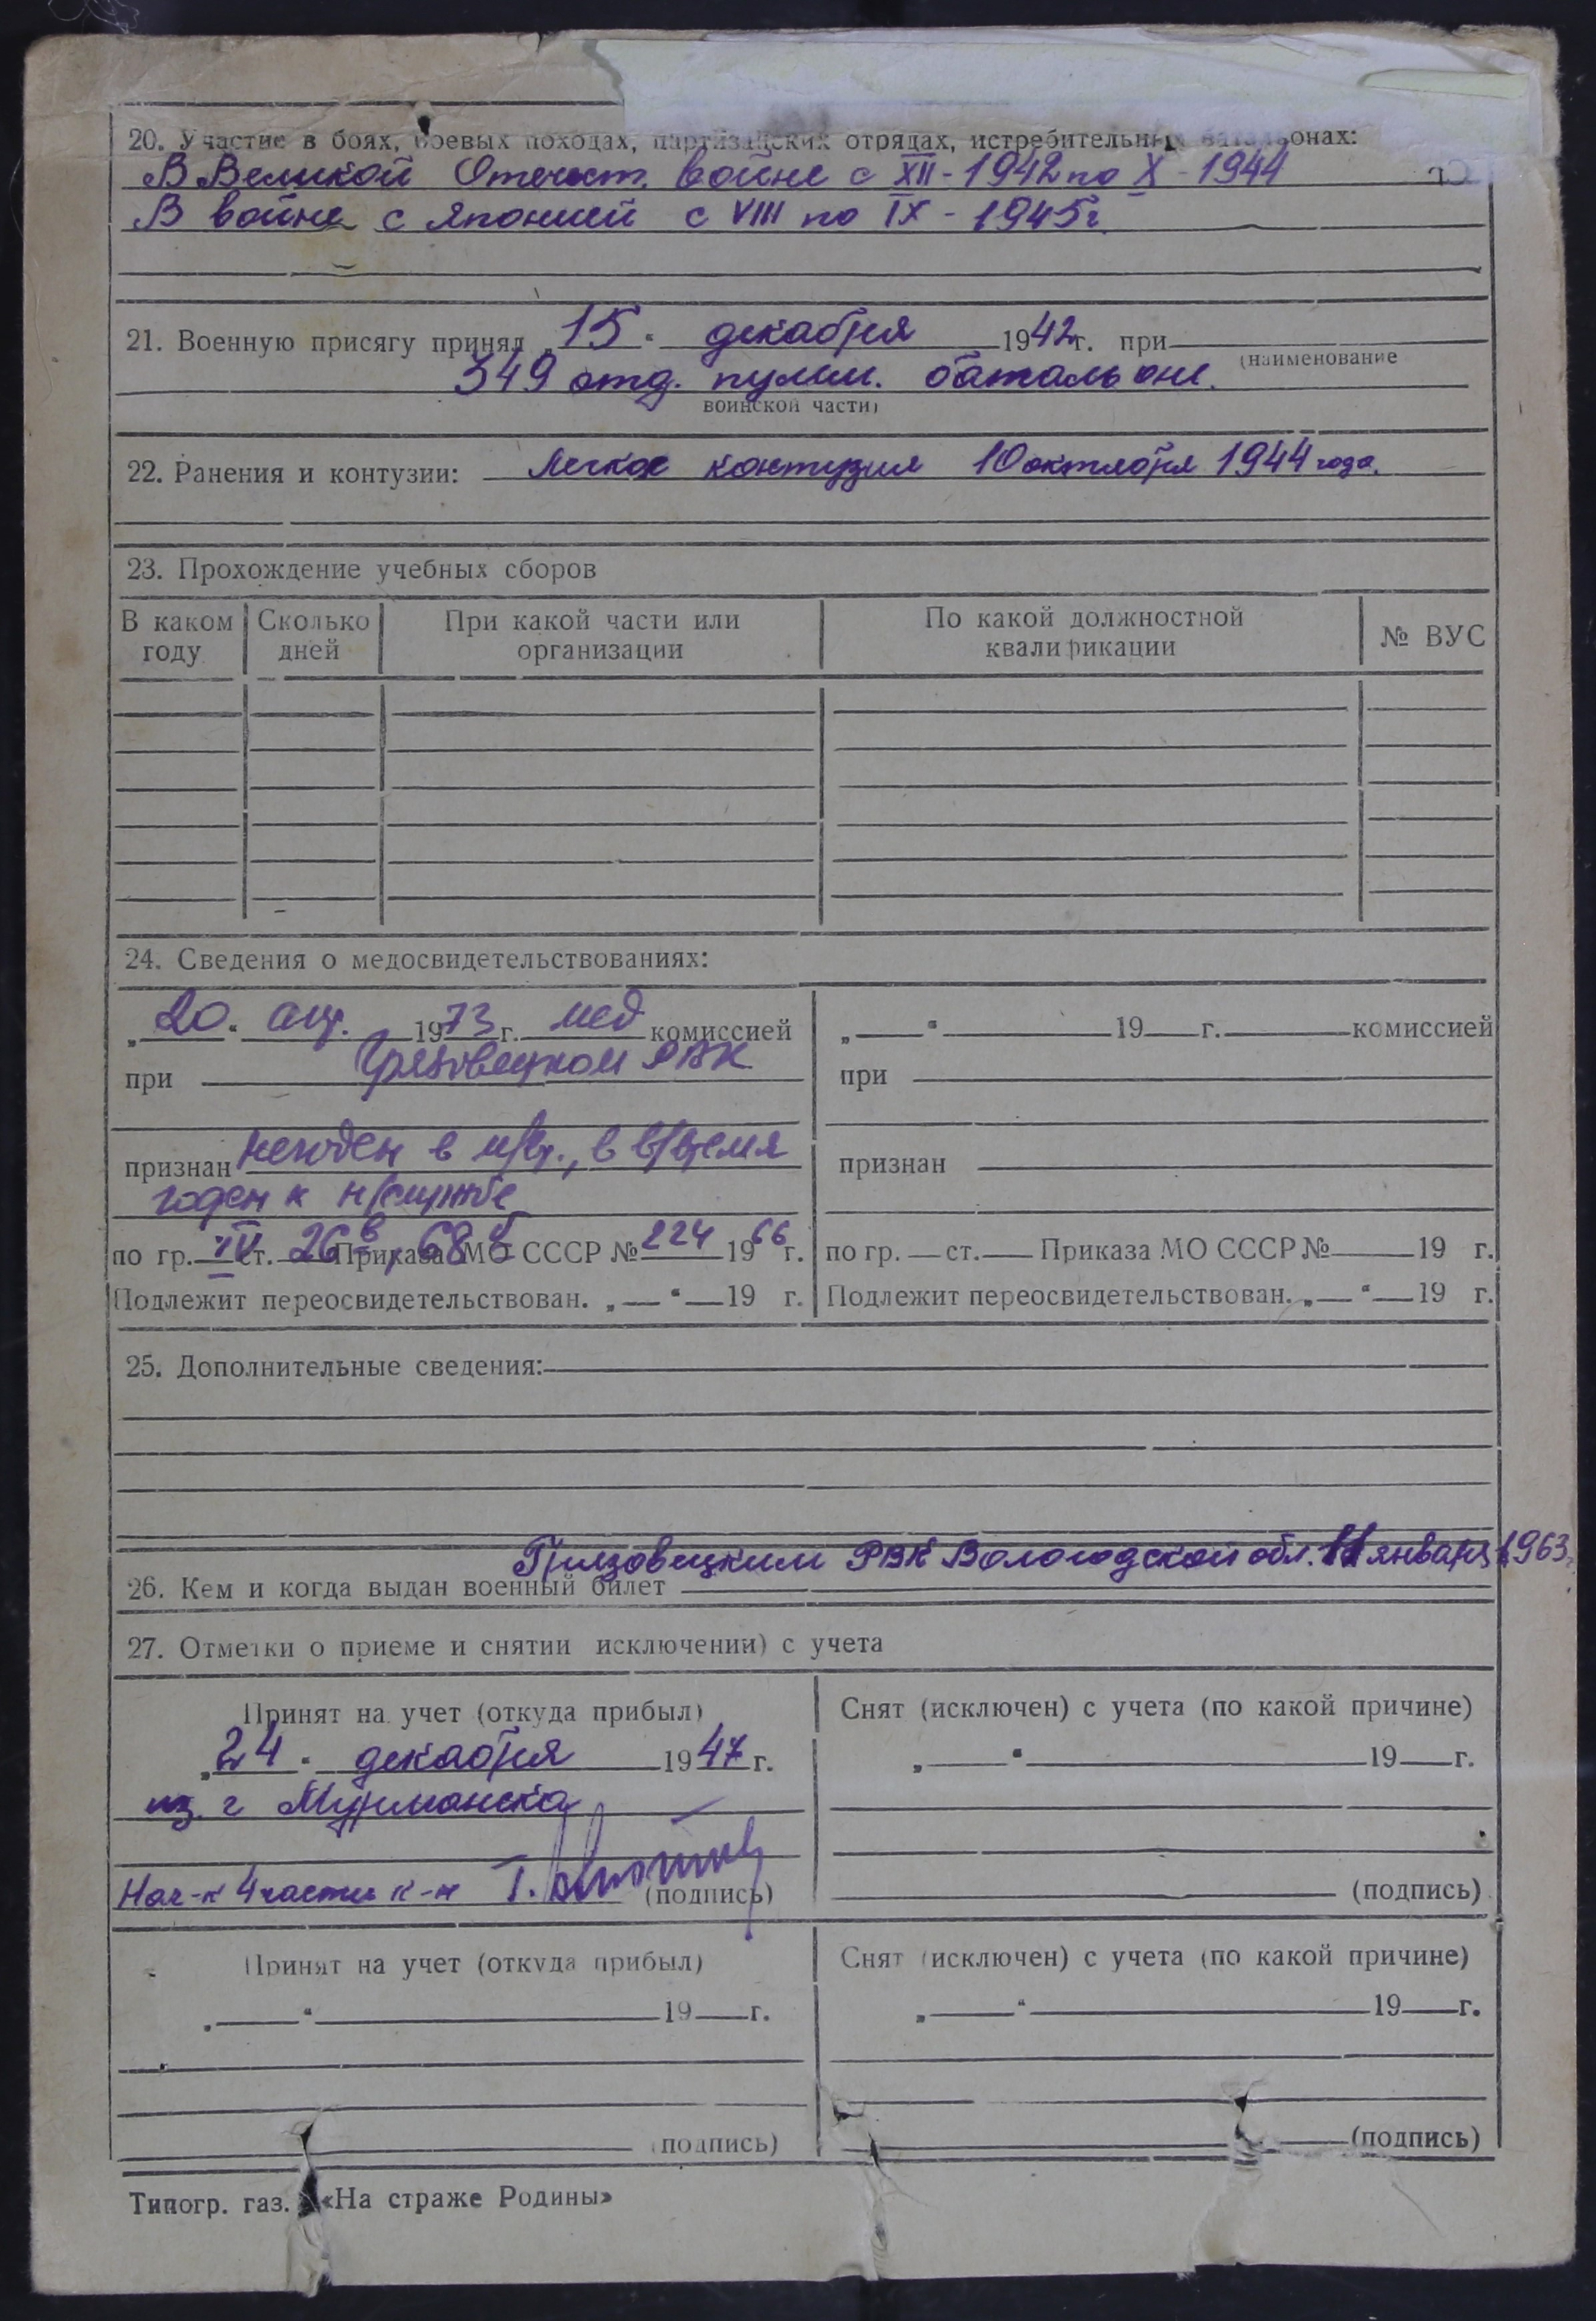 20. Участие в боях, боевых походах, партизанских отрядах, истребительных батальонах:
В Великой Отечест. войне с XII - 1942 по X - 1944
В войне с Японией с VIII по IX - 1945 г.
21. Военную присягу принял „15“ декабря 1942 г. при
(наименование
349 отд. пулем. батальоне.
воинской части)
22. Ранения и контузии: Легкое контузия 10 октября 1944 года.
23. Прохождение учебных сборов
В каком году Сколько дней При какой части или организации По какой должностной квалификации № ВУС
24. Сведения о медосвидетельствованиях:
„20“ апр. 1973 г. мед комиссией
при Грязовецком РВК
признан негоден в м/вр., в в/время
годен к н/службе
по гр. IV ст. 26в, 68б Приказа МО СССР № 224 1966 г.
Подлежит переосвидетельствован. „ “ 19 г.
„ “ 19 г. комиссией
при
признан
по гр. ст. Приказа МО СССР № 19 г.
Подлежит переосвидетельствован. „ “ 19 г.
25. Дополнительные сведения:
Грязовецким РВК Вологодской обл. 11 января 1963 г.
26. Кем и когда выдан военный билет
27. Отметки о приеме и снятии исключении) с учета
Принят на учет (откуда прибыл)
„24“ декабря 1947 г.
из г Мурманска
Нач-к 4 части к-н Т. (подпись)
Снят (исключен) с учета (по какой причине)
„ “ 19 г.
(подпись)
Принят на учет (откуда прибыл)
„ “ 19 г.
(подпись)
Снят (исключен) с учета (по какой причине)
„ “ 19 г.
(подпись)
Типогр. газ. «На страже Родины»